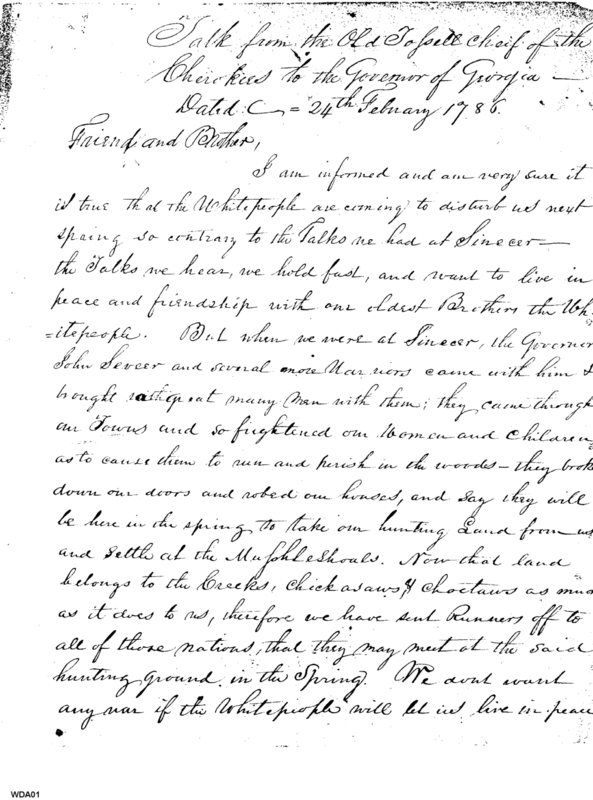 Talk from the Old Tassell Cheif of the
Cherokies to the Govenor of Georgia —
Dated = 24th Febuary 1786.
Friend and Brother,
I am informed and am very sure it
is true that the Whitepeople are coming to disturb us next
spring so contrary to the Talks we had at Sinecer —
the Talks we hear, we hold fast, and want to live in
peace and friendship with our oldest Brothers the Wh-
=itepeople. But when we were at Sinecer, the Governor
John Seveer and several more Warriors came with him &
brought great many Men with them; they came through
our Towns and so frightened our Women and Children
as to cause them to run and perish in the woods — they broke
down our doors and robed our houses, and say they will
be here in the spring to take our hunting Land from us
and settle at the Musshleshoals. Now that land
belongs to the Creeks, Chickasaws, & Choctaws as much
as it does to us, therefore we have sent Runners off to
all of those nations, that they may meet at the said
hunting ground in the Spring. We dont want
any war if the Whitepeople will let us live in peace
WDA01